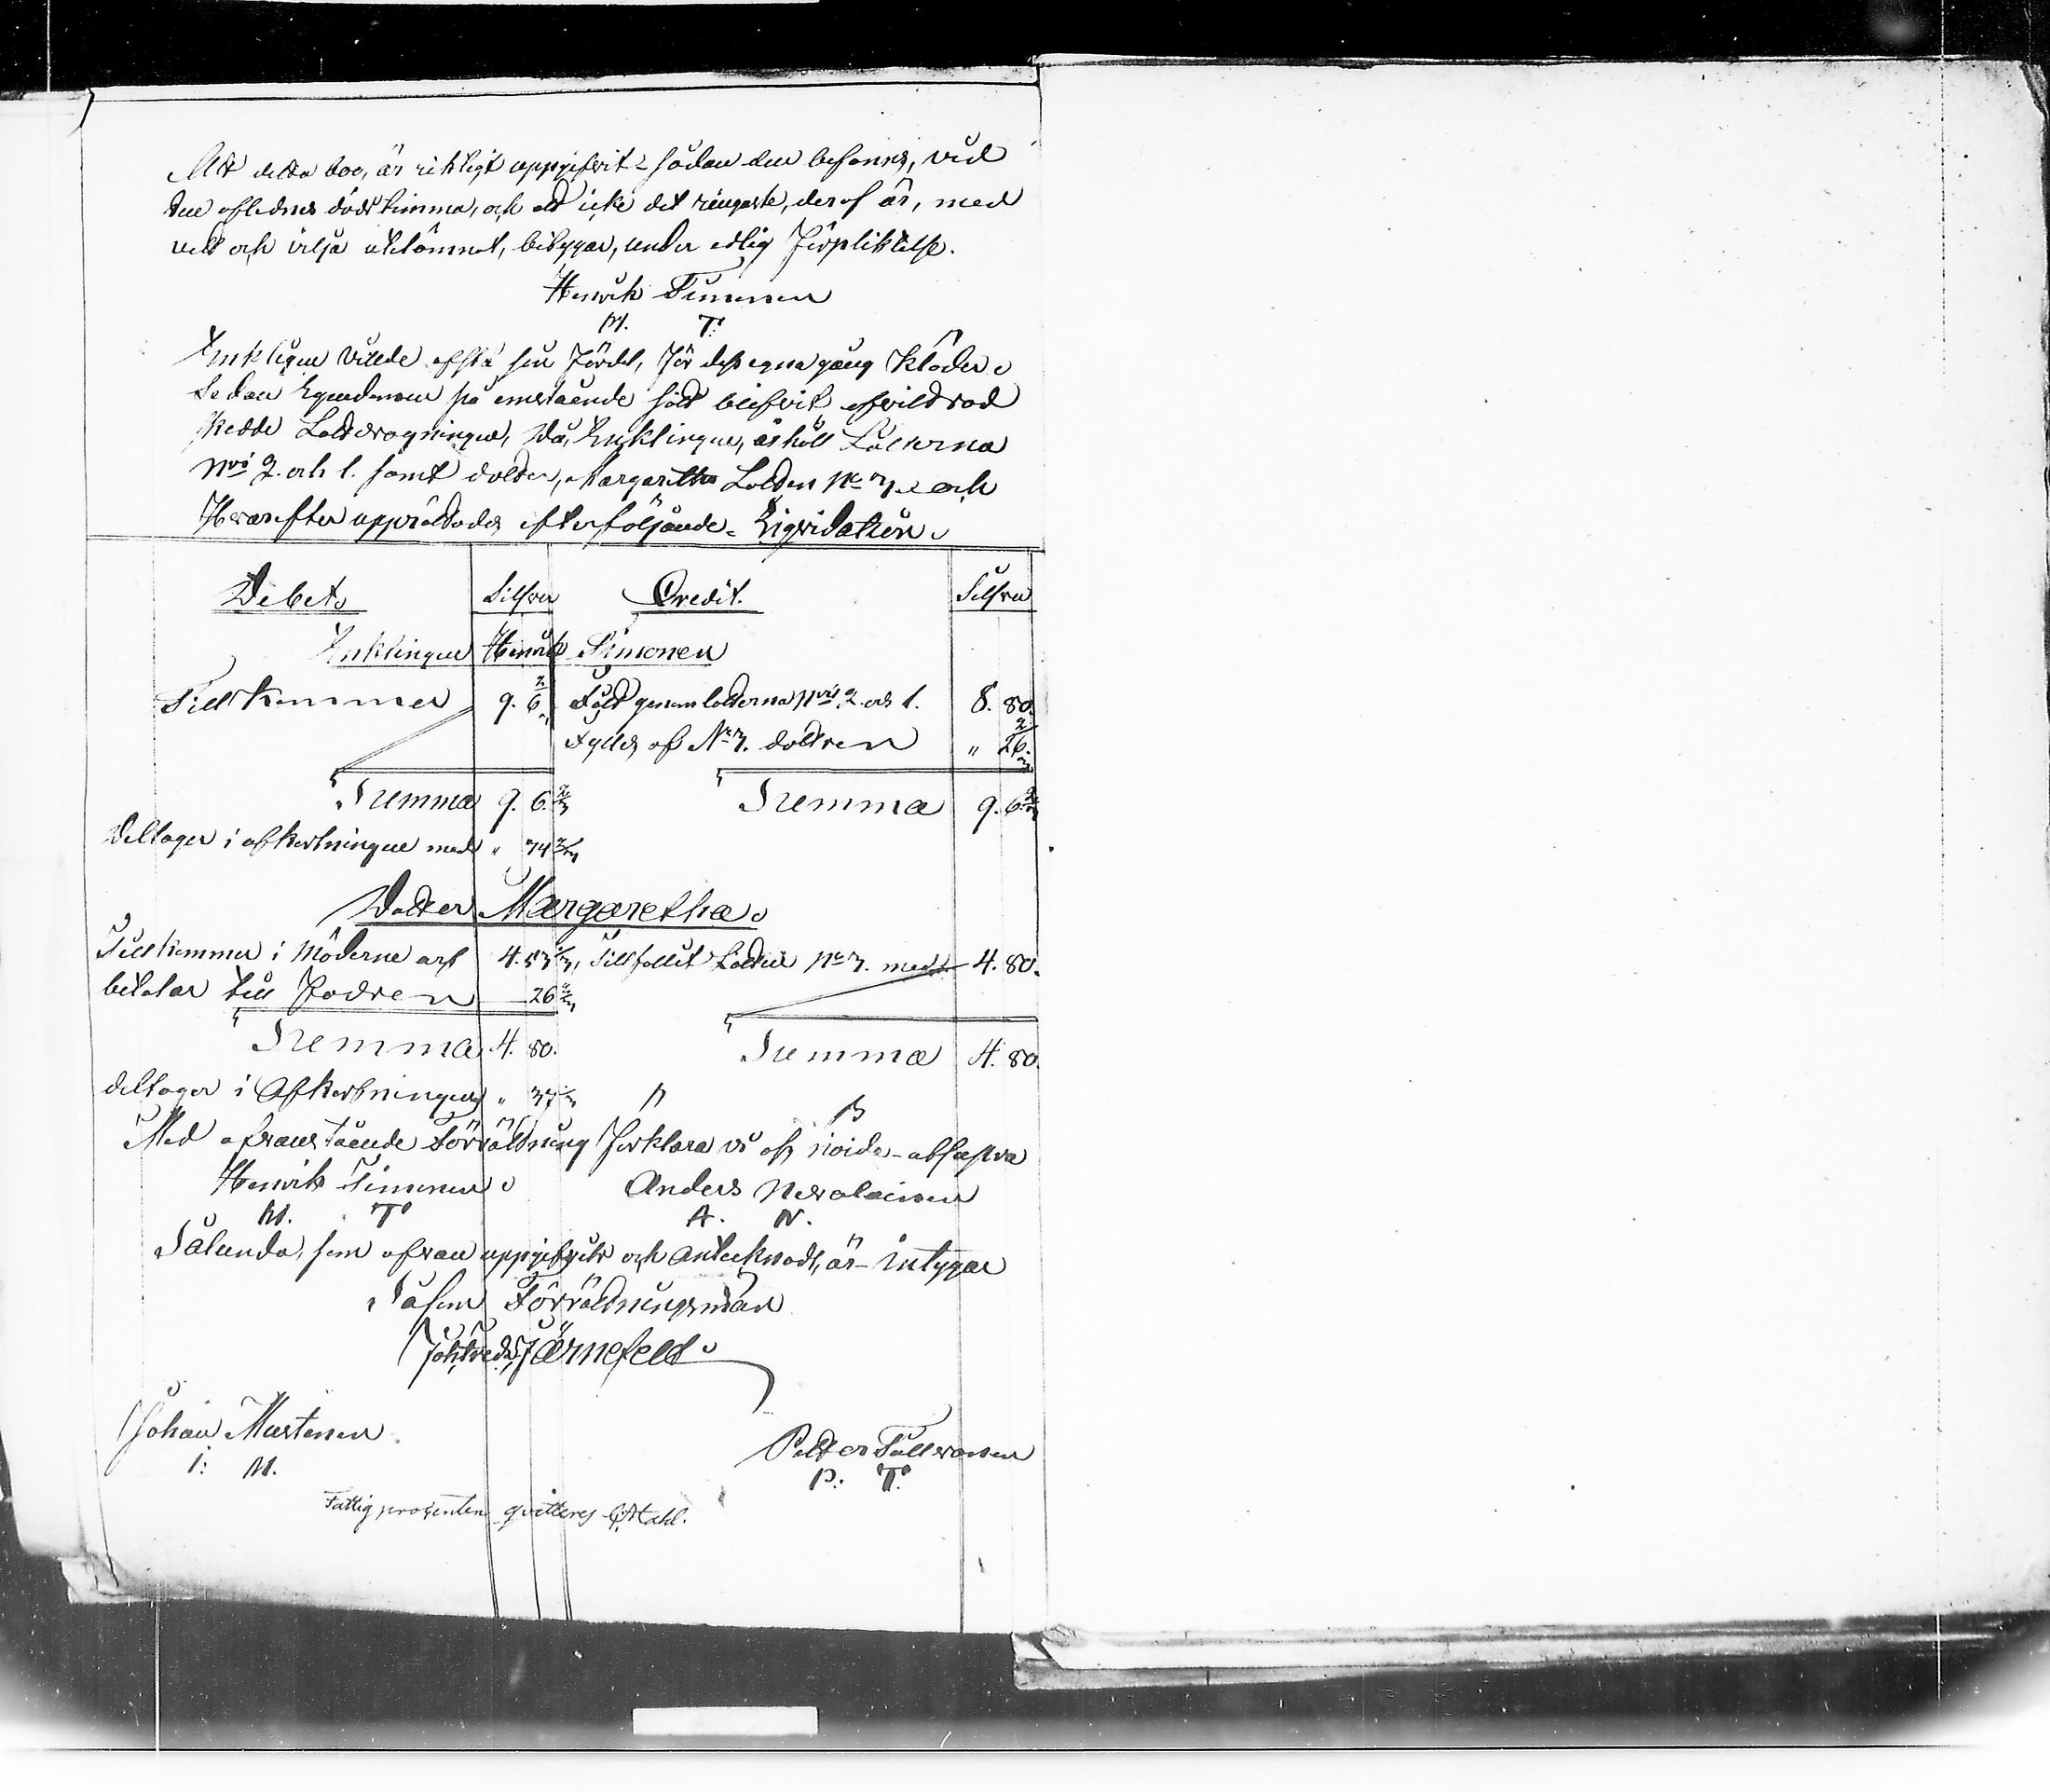 Att detta boo, är riktigt uppgifvit sådan den befanns, vid
den aflednes dödstimma, och at icke det ringaste, deraf är, med
vett och vilja utelämnat, betygar, under edlig Förpliktelse.
Henrik Timonen
M. T.
Enklingen villde afstå sin Fördel, för dess egna gång Kläder
Sedan Egendomen på ofvanstående sätt blifvit
skedde Lottdragningen, då, Enklingen, ärhöll Lotterna
Nris 2. och 1. samt dotter, Margaretha Lotten No 3. och
Hvarefter upprättades efterföljande Liqvidation
Debet Silfver Credit. Silfver
Enklingen Henrik Timonen
Tillkommer 9. 6 2/3 Fått genom lotterna Nris 2 och 1. 8. 80.
Fylles af No 3. dottren " 26 2/3
Summa 9. 6 2/3 Summa 9. 6 2/3
Deltager i afkortningen med " 74 2/3
Dotter Margaretha
Tillkommer i Möderne arf 4. 53 1/3 Tillfallit Lotten No 3. med 4. 80.
betalar till Fadren 26 2/3
Summa 4. 80. Summa 4. 80.
deltager i Afkortningen " 37 1/3
Med ofvanstående Förrättning Forklara vi oss nöida
Henrik Timonen Anders
M. T A. N.
Sålunda, som ofvan uppgifvits och Antecknadt, är intygar
Såsom Förrättningsman
Joh: Fredr: Järnefelt
Johan Mustonen Petter
I: M. P. T.
Fattigprocenten qvitteras Stahl.